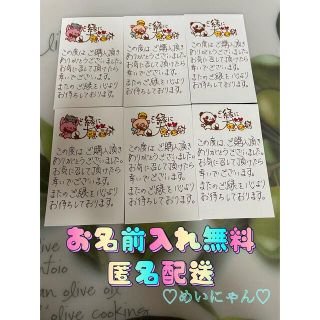 ご縁に
この度はご購入頂き
ありがとうございました。
お気に召して頂けたら
幸いでございます。
またのご縁を心より
お待ちしております。
ご縁に
この度はご購入頂き
ありがとうございました。
お気に召して頂けたら
幸いでございます。
またのご縁を心より
お待ちしております。
ご縁に
この度はご購入頂き
ありがとうございました。
お気に召して頂けたら
幸いでございます。
またのご縁を心より
お待ちしております。
ご縁に
この度はご購入頂き
ありがとうございました。
お気に召して頂けたら
幸いでございます。
またのご縁を心より
お待ちしております。
ご縁に
この度はご購入頂き
ありがとうございました。
お気に召して頂けたら
幸いでございます。
またのご縁を心より
お待ちしております。
ご縁に
この度はご購入頂き
ありがとうございました。
お気に召して頂けたら
幸いでございます。
またのご縁を心より
お待ちしております。
お名前入れ無料
匿名配送
♡めいにゃん♡
olive oil
olive cooking